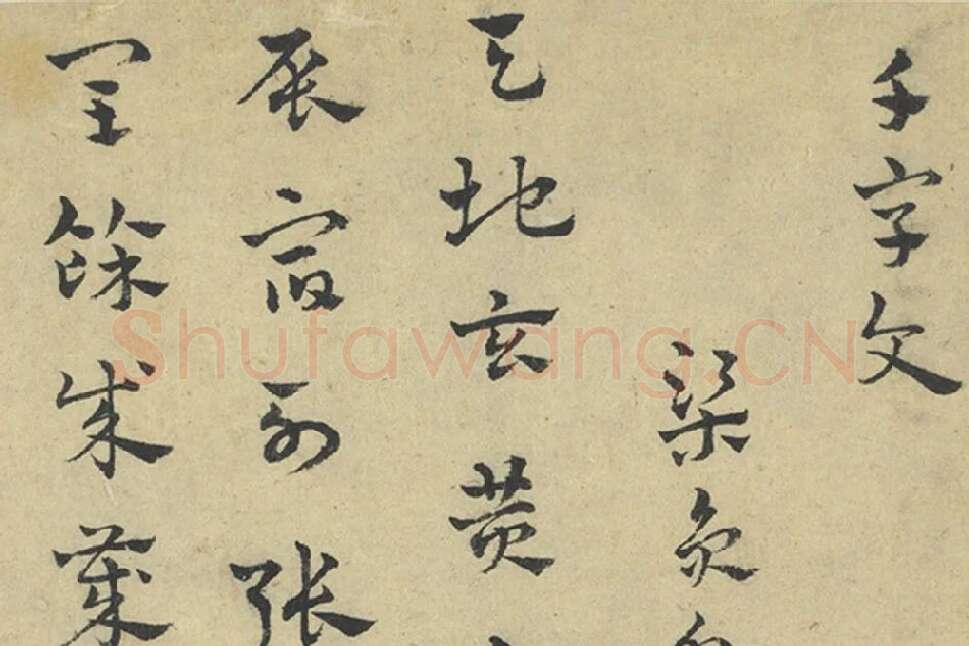 千字文
梁員
天地玄黄
辰宿列張
閏餘成歲
Shufawang.CN